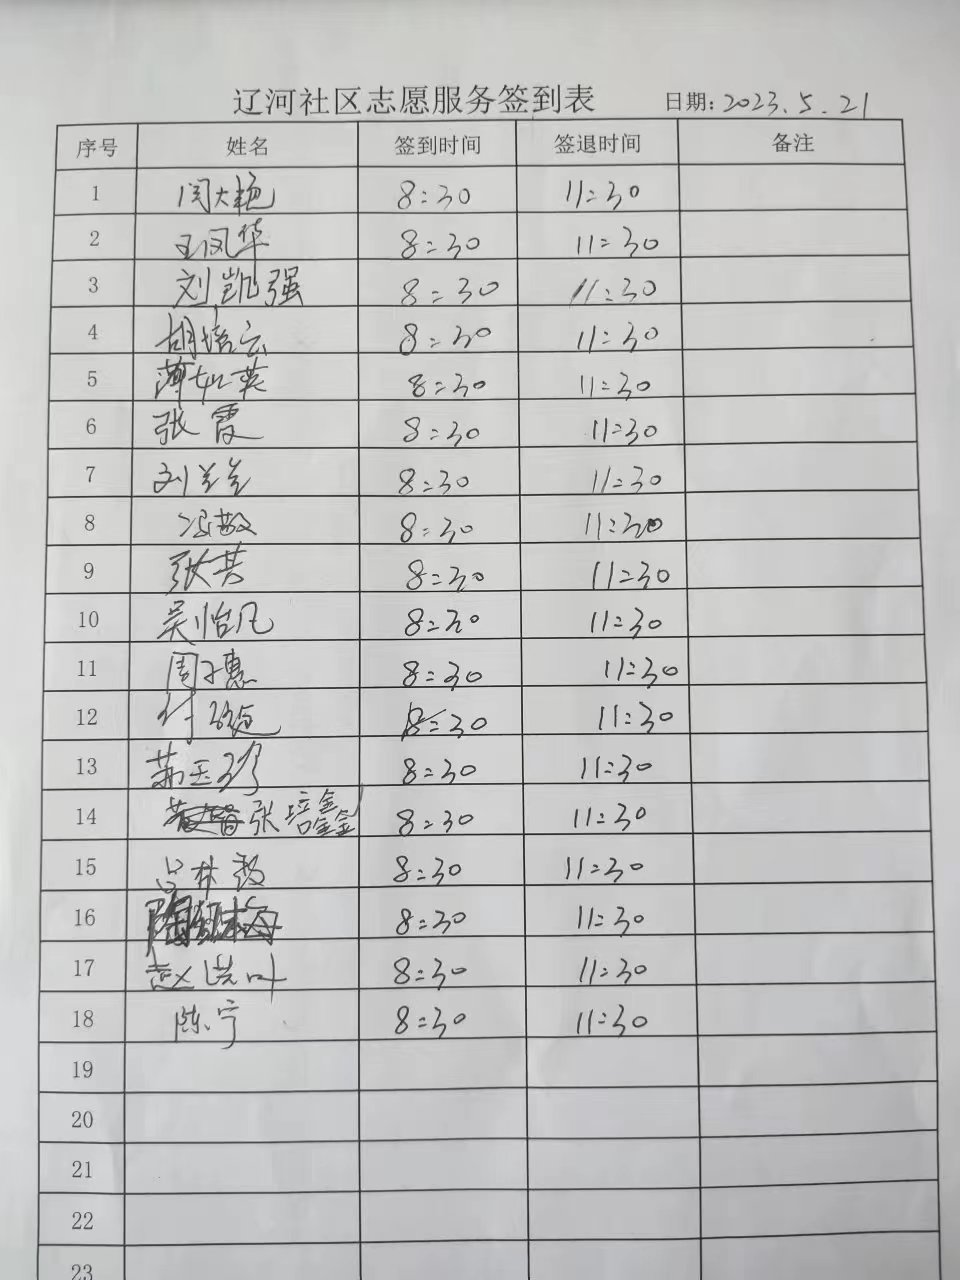 辽河社区志愿服务签到表 日期:2023.5.21
序号 姓名 签到时间 签退时间 备注
1 闫大艳 8:30 11:30
2 王凤华 8:30 11:30
3 刘凯强 8:30 11:30
4 胡培云 8:30 11:30
5 8:30 11:30
6 张霞 8:30 11:30
7 刘兰兰 8:30 11:30
8 冯敬 8:30 11:30
9 张英 8:30 11:30
10 吴怡凡 8:30 11:30
11 周子惠 8:30 11:30
12 8:30 11:30
13 8:30 11:30
14 张培鑫 8:30 11:30
15 吕林 8:30 11:30
16 8:30 11:30
17 赵洪叶 8:30 11:30
18 陈宁 8:30 11:30
19
20
21
22
23